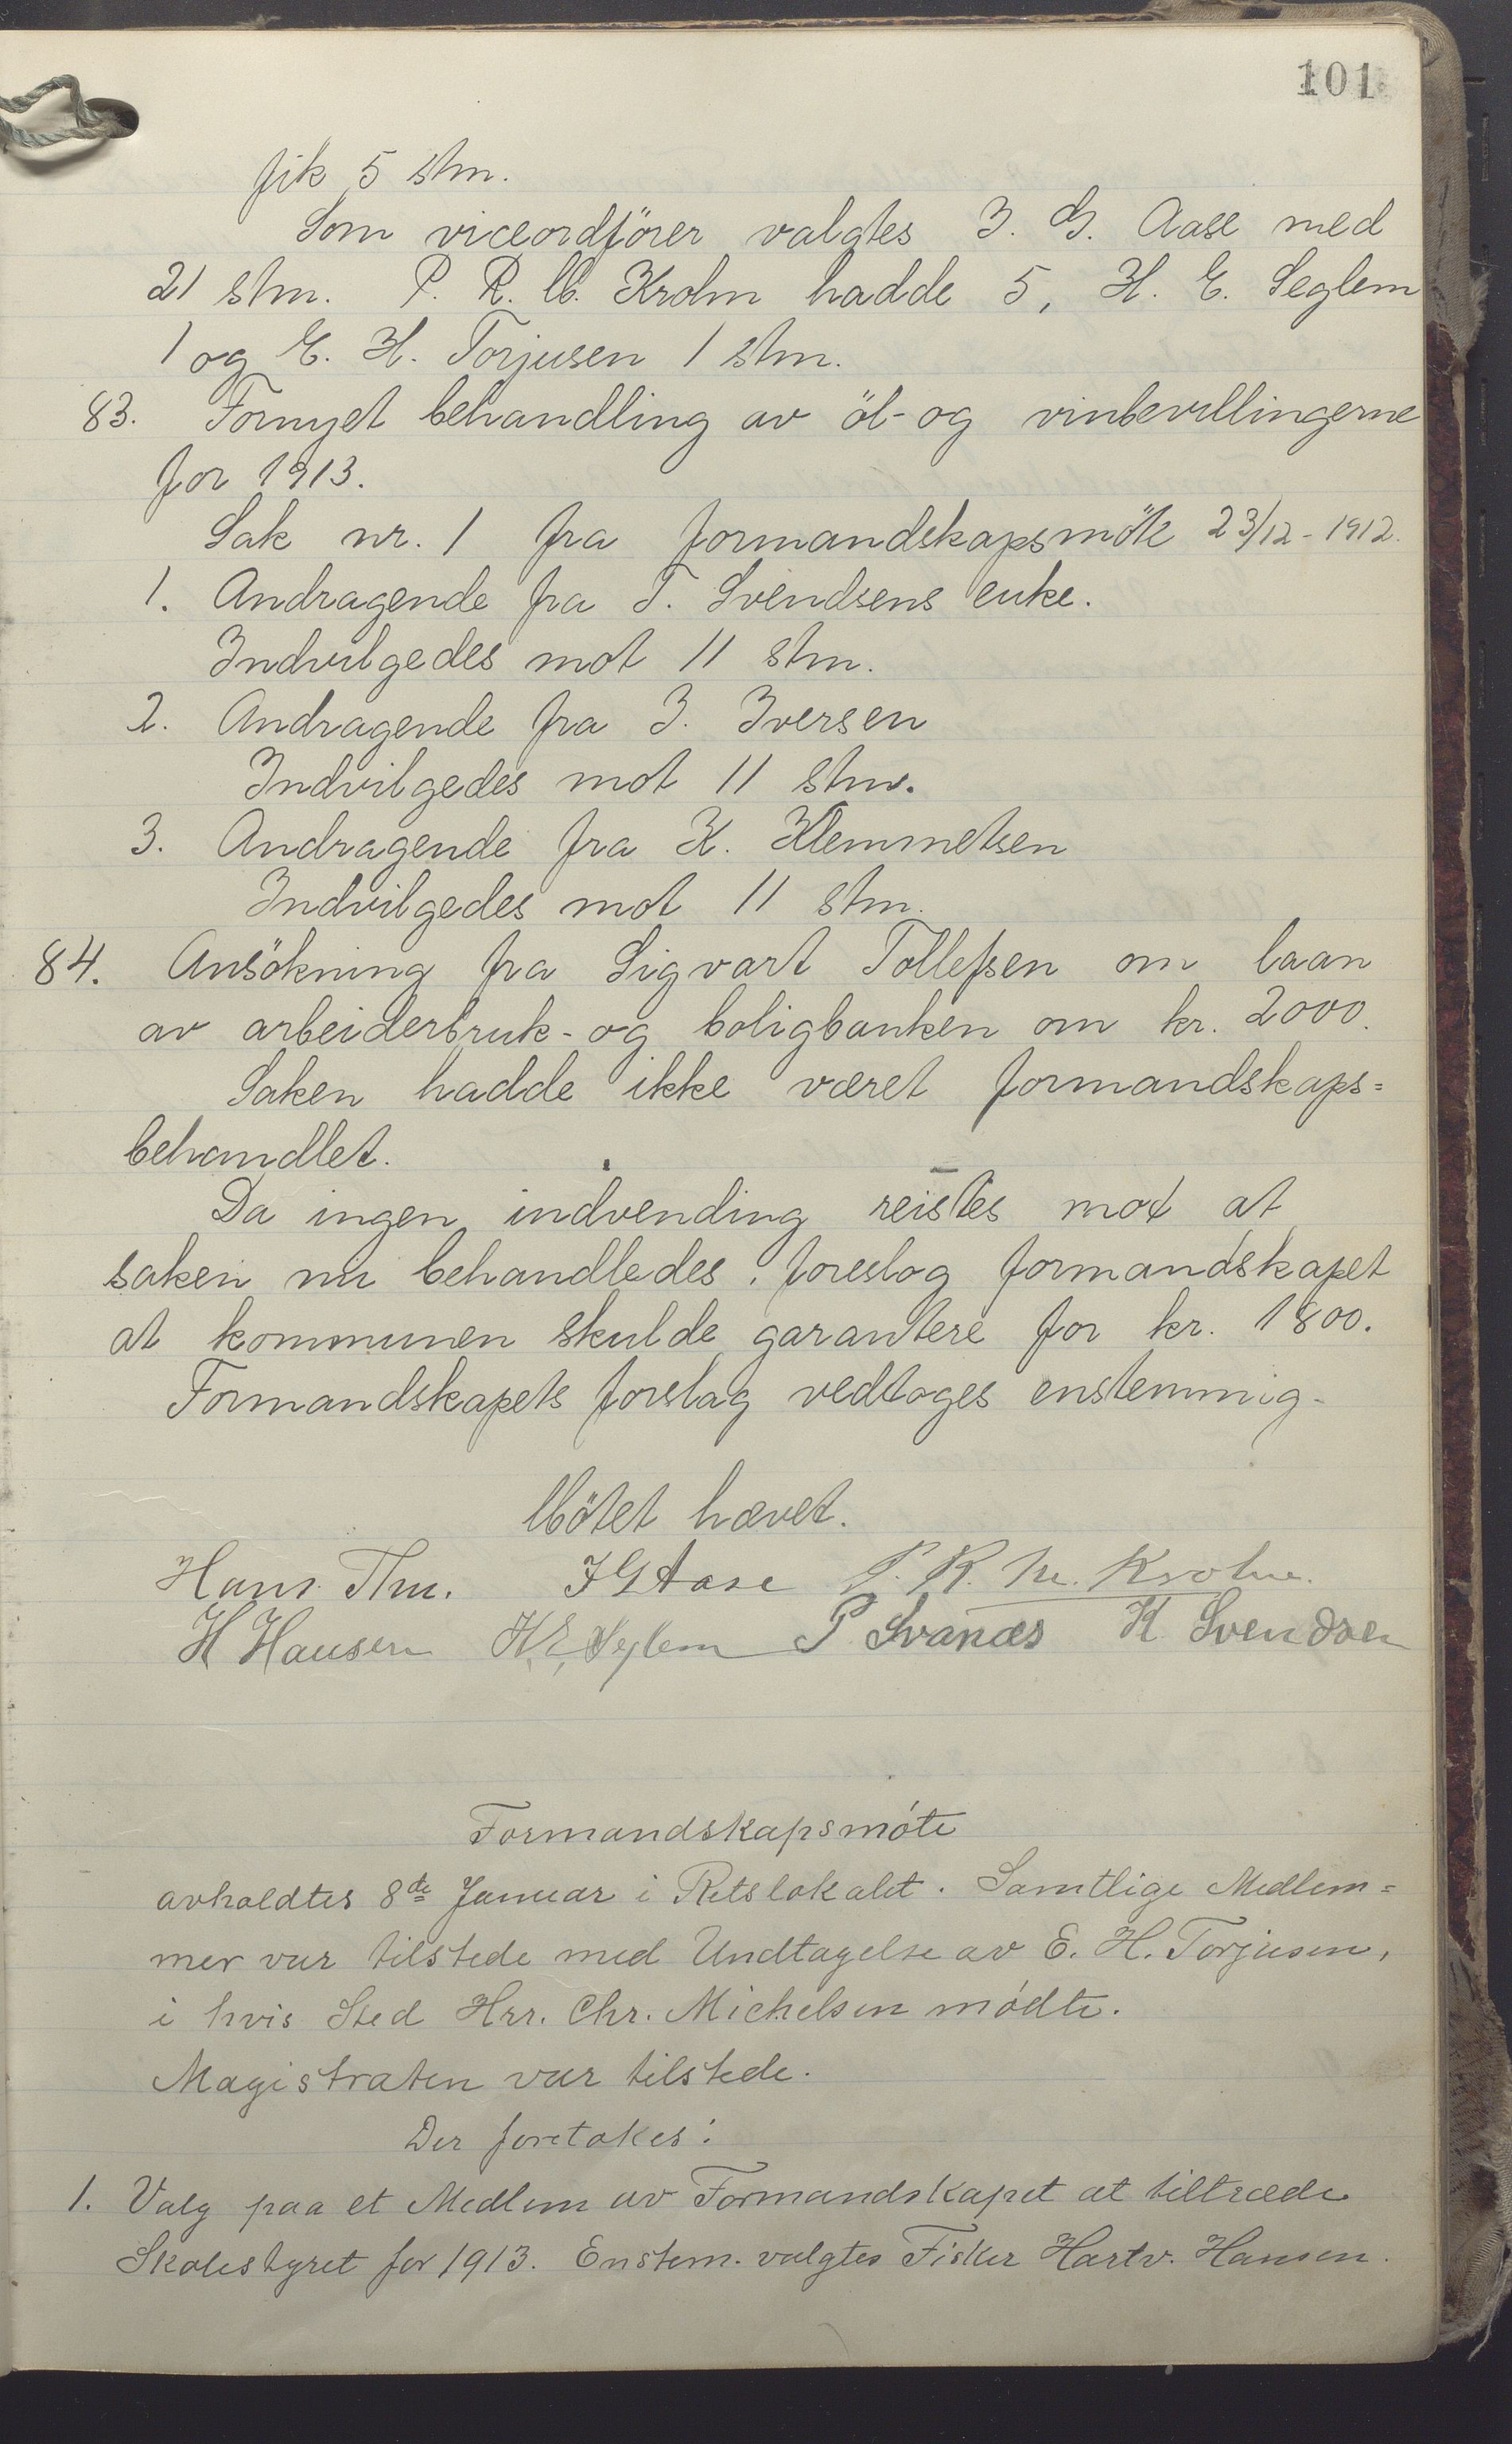 101
fik 5 stm.
Som viceordförer valgtes J. G. Aase med
21 stm. P. R. M. Krohn hadde 5, H. E. Seglem
1 og E. H. Torjusen 1 stm.
83. Fornyet behandling av öl- og vinbevillingerne
for 1913.
Sak nr. 1 fra formandskapsmöte 23/12 - 1912.
1. Andragende fra T. Svendsens enke.
Indvilgedes mot 11 stm.
2. Andragende fra I. Iversen
Indvilgedes mot 11 stm.
3. Andragende fra K. Klemmetsen
Indvilgedes mot 11 stm.
84. Ansökning fra Sigvart Tollefsen om laan
av arbeiderbruk- og boligbanken om kr. 2000.
Saken hadde ikke været formandskaps=
behandlet.
Da ingen indvending reistes mot at
saken nu behandledes, foreslog formandskapet
at kommunen skulde garantere for kr. 1800.
Formandskapets forslag vedtoges enstemmig.
Mötet hævet.
Hans Thu. J G Aase P. R. M. Krohn.
H Hansen H. E. Seglem P. Svanæs K Svendsen
Formandskapsmóte
avholdtes 8de Januar i Retslokalet. Samtlige Medlem=
mer var tilstede med Undtagelse av E. H. Torjusen,
i hvis Sted Hrr. Chr. Michelsen módte.
Magistraten var tilstede.
Der foretokes:
1. Valg paa et Medlem av Formandskapet at tiltræde
Skolestyret for 1913. Enstem. valgtes Fisker Hartv. Hansen.